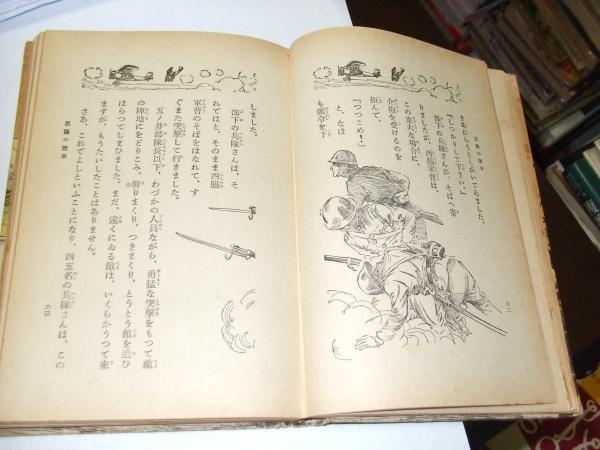 きながらうとしがいてゐました。
「しつかりして下さい。」
部下の兵隊さんが、そばへ寄
りましたが、
この重大な場合に、
介抱を受けるのを
拒んで、
「つつこめ!」
と、なほ
も號令を下
しました。
部下の兵隊さんは、そ
れではと、そのまま西脇
軍曹のそばをはなれて、す
ぐまた突撃して行きました。
五ノ井部隊長以下、わづかの人員ながら、勇猛な突撃をもつて敵
の陣地にをどりこみ、斬りまくり、つきまくり、とうとう敵を追ひ
はらつてしまひました。まだ、遠くにゐる敵は、いくらかうつて來
ますが、もうたいしたことはありません。
さあ、これでよしといふことになり、四五名の兵隊さんは、この